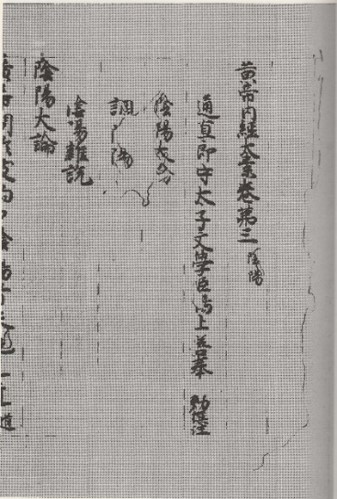 黄帝内經太素卷第三 陰陽
通直郎守太子文學臣楊上善奉 勅撰注
陰陽大論
調陰陽
陰陽雜說
陰陽大論
曰陰陽者天地之道